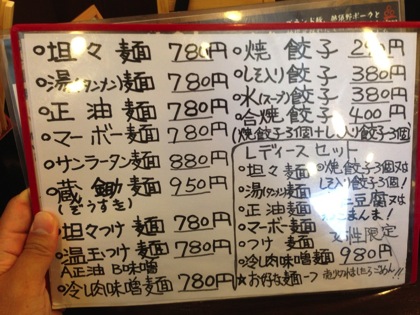 ○坦々麺 780円
○湯(タンメン)麺 780円
○正油麺 780円
○マーボー麺 780円
○サンラータン麺 880円
○蔵鋤麺 950円
(ぞうすき)
○坦々つけ麺 780円
○温玉つけ麺 780円
A正油 B味噌
○冷し肉味噌麺 780円
○焼餃子
○しそ入り餃子 380円
○水(スープ)餃子 380円
○合焼餃子 400円
(焼餃子3個+しそ入り餃子3個)
レディースセット
○坦々麺
○湯(タンメン)麺
○正油麺
○マーボー麺
○つけ麺
○冷し肉味噌麺
★お好な麺一つ
○焼餃子3個又は
しそ入り餃子3個!
豆腐又は
まんま!
女性限定
980円
売り切れましたらごめん!!